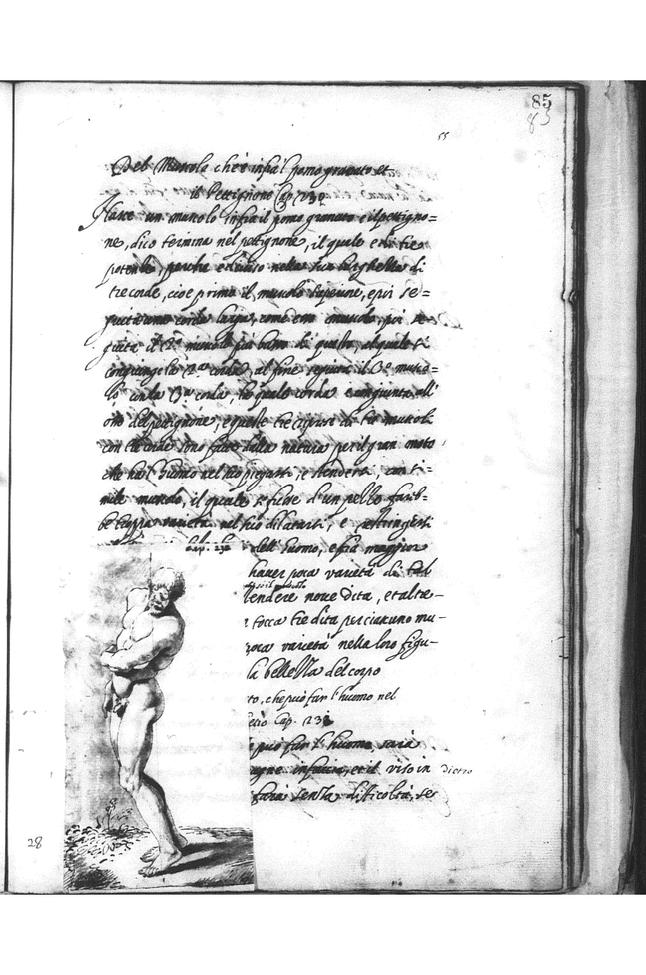 85
83
55
Del Muscolo ch'è infra'l pomo granato et
il Pettignone Cap. 230
Nasce un muscolo infra il pomo granato e il pettigno=
ne, dico termina nel pettignone, il quale e di tre
potentie, perche e diviso nella sua lunghezza di
tre corde, cioe prima il muscolo superiore, e poi se=
guita una corda larga, come esso muscolo, poi se
guita il 2.º muscolo piu basso di questo, al quale si
congiunge la 2.ª corda, al fine seguita il 3.º musco=
lo con la 3.ª corda, la qual corda e congiunta all'
osso del pettignone, e queste tre di tre muscoli
con tre corde sono fatte dalla natura per il gran moto
che ha l'huomo nel suo piegarsi, e stendersi con si=
mile muscolo, il quale se fusse d'un pezzo fareb=
be troppa varietà nel suo dilatarsi, e restringersi
Cap. 231
dell'huomo, e fia maggior
haver poca varietà di tal
il muscolo
stendere nove dita, et altre=
tocca tre dita per ciascuno mu=
poca varietà nella loro figu=
la bellezza del corpo
to, che può far l'huomo nel
Cap. 231
può far l'huomo, sarà
infaccia, et il viso in dietro
farà senza dificoltà, se
28